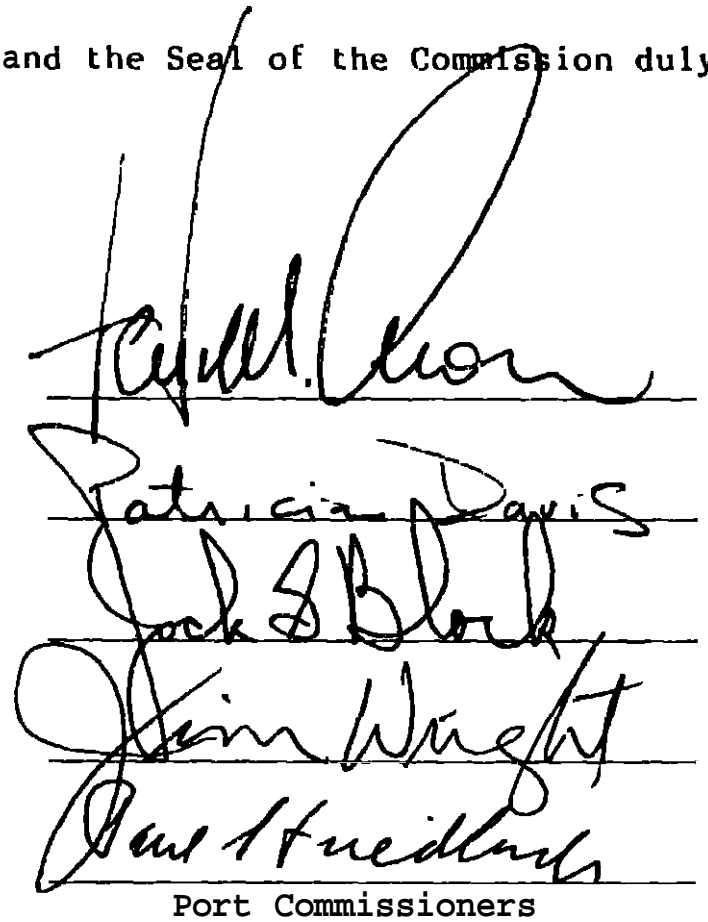 and the Seal of the Commission duly
Patricia Davis
Jack S Block
Jim Wright
Port Commissioners